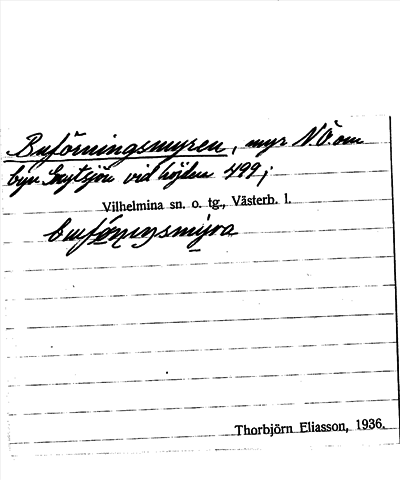 Buförningsmyren, myr N.Ö. om
byn vid höjden 499;
Vilhelmina sn. o. tg., Västerb. l.
bufö̱ni̱ŋsmy̱ra
Thorbjörn Eliasson, 1936.